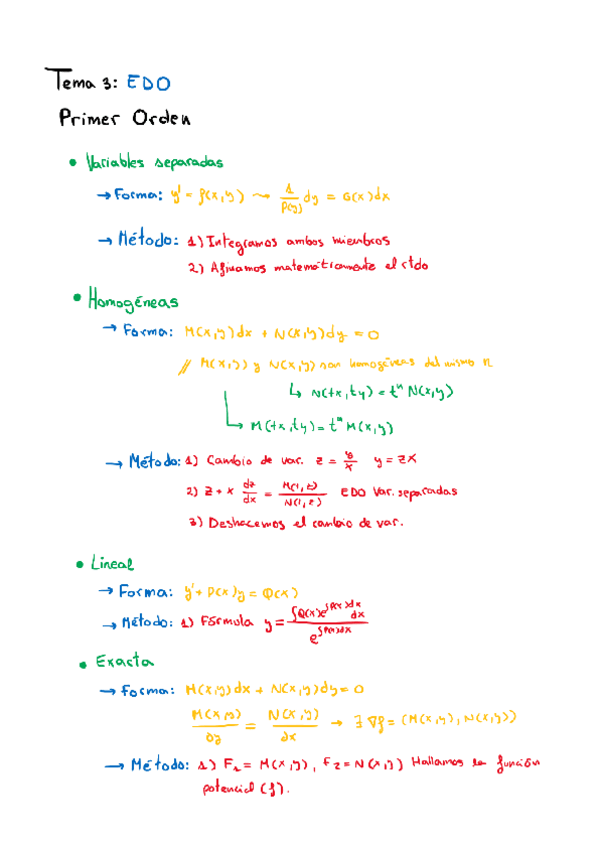 Tema 3: EDO
Primer Orden
• Variables separadas
→ Forma: y' = f(x,y) ⤳ 1/P(y) dy = G(x)dx
→ Método: 1) Integramos ambos miembros
2) Afinamos matemáticamente el rtdo
• Homogéneas
→ Forma: M(x,y)dx + N(x,y)dy = 0
// M(x,y) y N(x,y) son homogéneas del mismo n
↳ N(tx,ty) = tⁿ N(x,y)
↳ M(tx,ty) = tⁿ M(x,y)
→ Método: 1) Cambio de var. z = y/x y = zx
2) z + x dz/dx = M(1,z)/N(1,z) EDO Var. separadas
3) Deshacemos el cambio de var.
• Lineal
→ Forma: y' + P(x)y = Q(x)
→ Método: 1) Fórmula y = ∫Q(x)e^∫P(x)dx dx / e^∫P(x)dx
• Exacta
→ Forma: M(x,y)dx + N(x,y)dy = 0
M(x,y)/∂y = N(x,y)/∂x → ∃ ∇f = (M(x,y), N(x,y))
→ Método: 1) F₁ = M(x,y), F₂ = N(x,y) Hallamos la función
potencial (f).